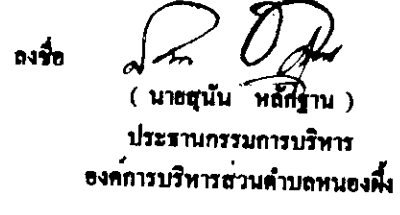 ลงชื่อ
( นายสุนัน หลักฐาน )
ประธานกรรมการบริหาร
องค์การบริหารส่วนตำบลหนองผึ้ง